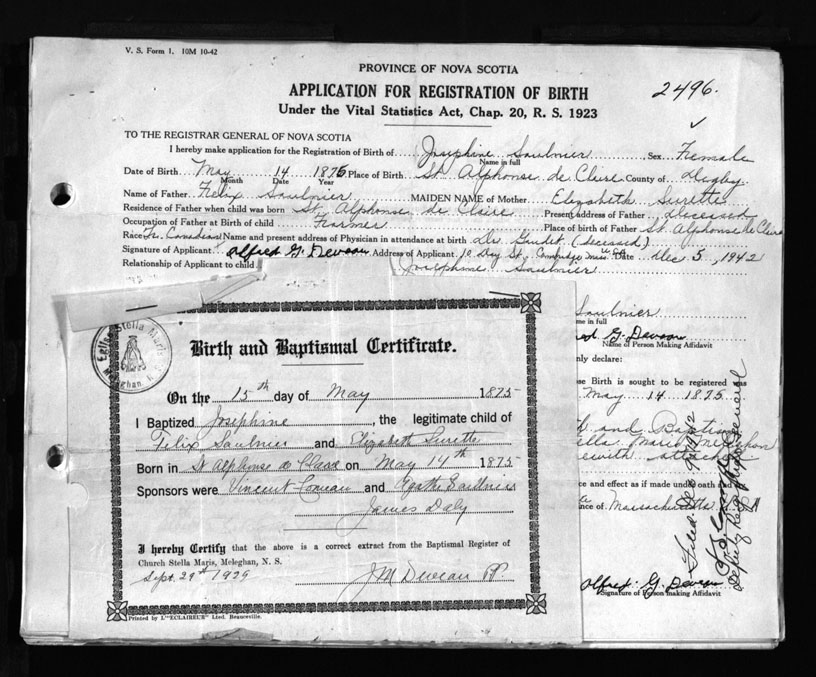 V. S. Form 1. 10M 10-42
PROVINCE OF NOVA SCOTIA
APPLICATION FOR REGISTRATION OF BIRTH
2496.
Under the Vital Statistics Act, Chap. 20, R. S. 1923
TO THE REGISTRAR GENERAL OF NOVA SCOTIA
I hereby make application for the Registration of Birth of Josephine Saulnier, Sex Female
Name in full
Date of Birth May 14 1875 Place of Birth St Alphonse de Clare County of Digby
Month Date Year
Name of Father Felix Saulnier MAIDEN NAME of Mother Elizabeth Surette
Residence of Father when child was born St. Alphonse de Claire Present address of Father Deceased
Occupation of Father at Birth of child Farmer Place of birth of Father St Alphonse de Clare
Race Fr. Canadians Name and present address of Physician in attendance at birth Dr. Gudet (deceased)
Signature of Applicant Alfred G. Deveau Address of Applicant 10 Day St, Cambridge Mass. USA Date Dec 5, 1942
Relationship of Applicant to child
Josephine Saulnier
Saulnier
me in full
ed G. Deveau
Name of Person Making Affidavit
nly declare:
se Birth is sought to be registered was
May 14 1875
h and Baptism
ella Maris Meteghan
ewith attached
ce and effect as if made under oath and
nce of Massachusetts
Alfred G. Deveau
Signature of Person making Affidavit
Filed Dec 9 1942
Deputy Registrar General
Eglise Stella Maris
Meteghan N. S.
Birth and Baptismal Certificate.
On the 15th day of May 1875
I Baptized Josephine, the legitimate child of
Felix Saulnier and Elizabeth Surette
Born in St Alphonse de Clare on May 14th 1875
Sponsors were Vincent Comeau and Egathe Saulnier
James Daly
I hereby Certify that the above is a correct extract from the Baptismal Register of
Church Stella Maris, Meteghan, N. S.
Sept. 29th 1929 J M Deveau PP.
Printed by L'"ECLAIREUR" Lted. Beauceville.